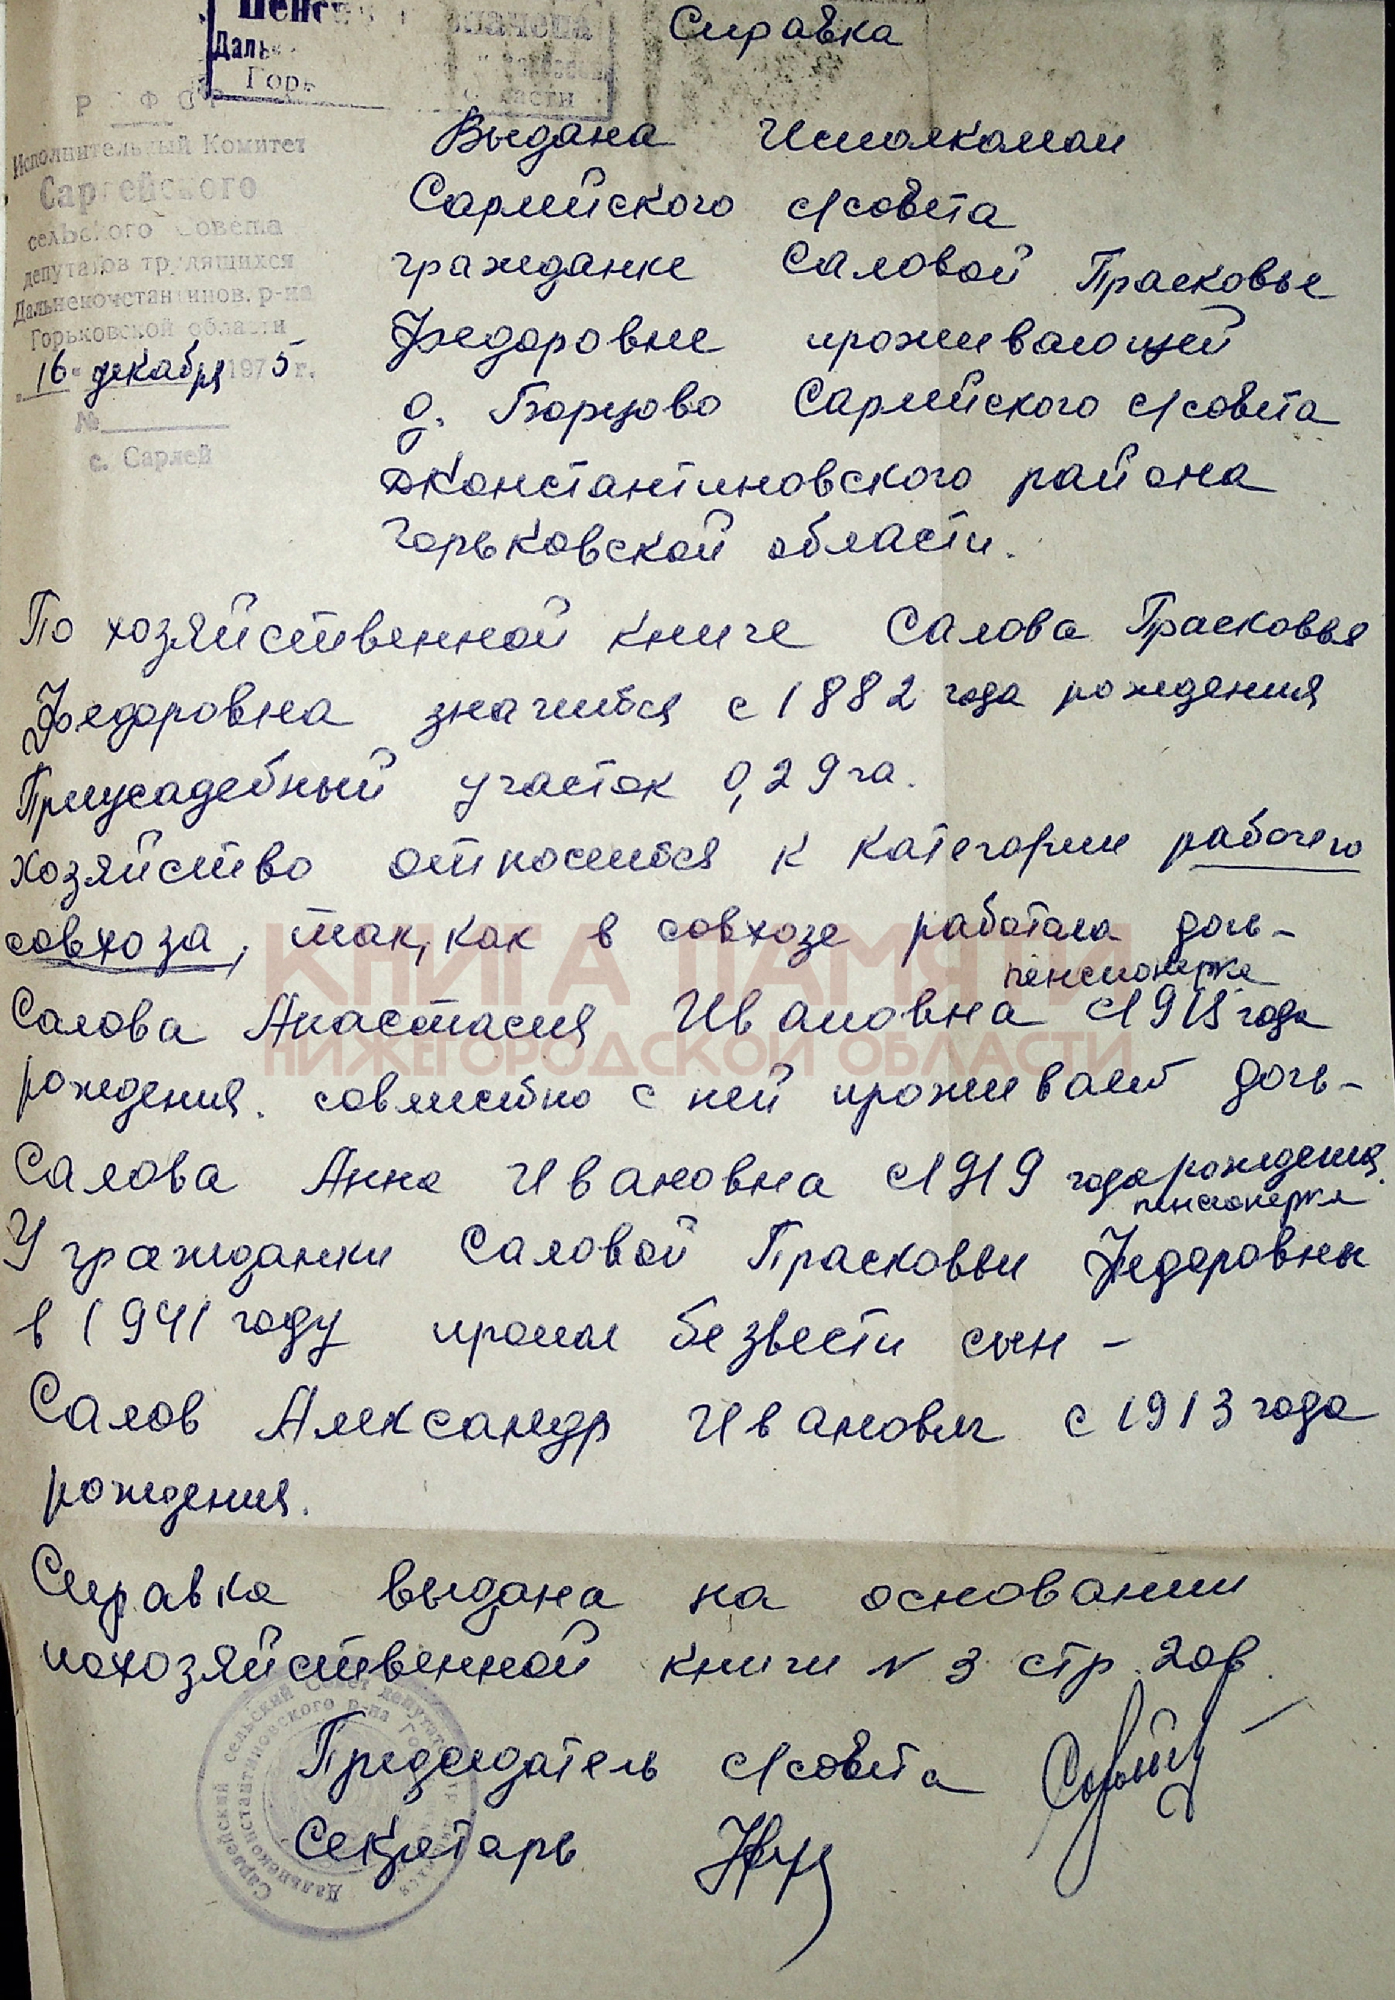 Справка
Р Ф С Р
Исполнительный Комитет
Сарлейского
сельского Совета
депутатов трудящихся
Дальнеконстантинов. р-на
Горьковской области
16 декабря 1975 г.
№
с. Сарлей
Выдана Исполкомом
Сарлейского с/совета
гражданке Саловой Прасковье
Федоровне проживающей
д. Борцово Сарлейского с/совета
Дконстантиновского района
Горьковской области.
По хозяйственной книге Салова Прасковья
Федоровна значится с 1882 года рождения
Приусадебный участок 0,29 га.
хозяйство относится к категории рабочего
совхоза, так, как в совхозе работала дочь-
пенсионерка
Салова Анастасия Ивановна с года
рождения. совместно с ней проживает дочь-
Салова Анна Ивановна с 1919 года рождения.
пенсионерка
У гражданки Саловой Прасковьи Федоровны
в 1941 году пропал без вести сын -
Салов Александр Иванович с 1913 года
рождения.
Справка выдана на основании
похозяйственной книги N 3 стр.
Председатель с/совета
Секретарь
КНИГА ПАМЯТИ
НИЖЕГОРОДСКОЙ ОБЛАСТИ